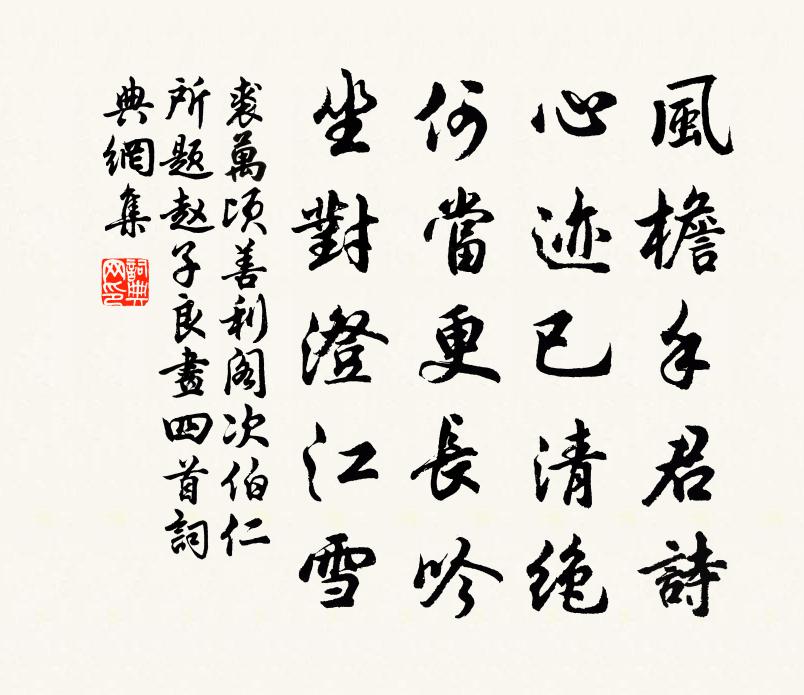 風檐手君詩
心迹已清絶
何當更長吟
坐對澄江雪
裘萬頃善利閣次伯仁
所题赵子良畫四首詞
典網集
詞典网印